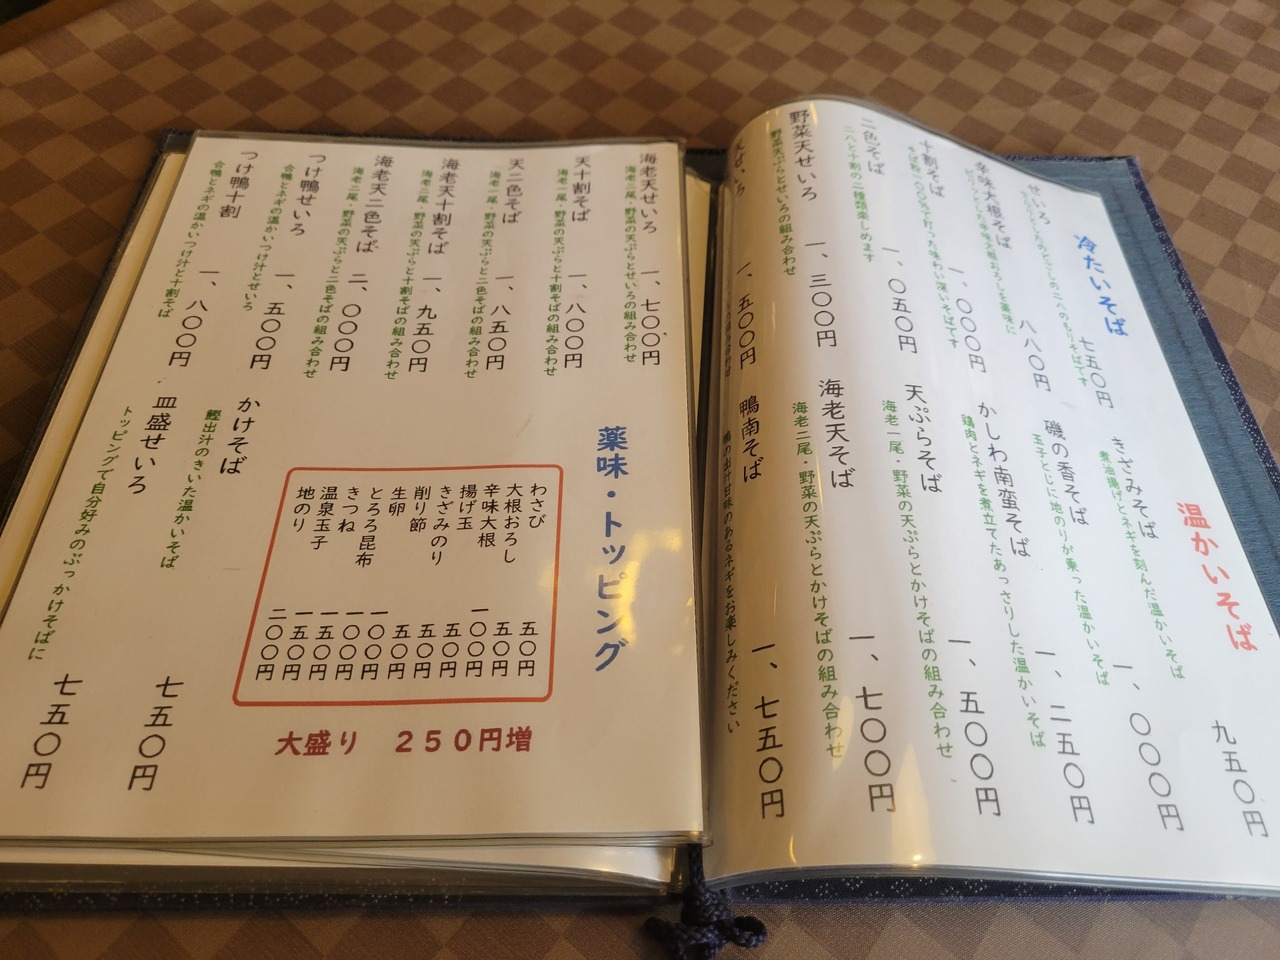 冷たいそば
せいろ 七五〇円
辛味大根そば 八八〇円
ピリッとした辛味大根おろしを薬味に
十割そば 一、〇〇〇円
そば粉一〇〇%で打った味わい深いそばです
二色そば 一、〇五〇円
二八と十割の二種類楽しめます
野菜天せいろ 一、三〇〇円
野菜天ぷらとせいろの組み合わせ
天せいろ 一、五〇〇円
温かいそば
九五〇円
きざみそば 一、〇〇〇円
煮油揚げとネギを刻んだ温かいそば
磯の香そば 一、二五〇円
玉子とじに地のりが乗った温かいそば
かしわ南蛮そば 一、五〇〇円
鶏肉とネギを煮立てたあっさりした温かいそば
天ぷらそば 一、七〇〇円
海老一尾・野菜の天ぷらとかけそばの組み合わせ
海老天そば 一、七五〇円
海老二尾・野菜の天ぷらとかけそばの組み合わせ
鴨南そば
鴨の出汁甘味のあるネギをお楽しみください
海老天せいろ 一、七〇〇円
海老二尾・野菜の天ぷらとせいろの組み合わせ
天十割そば 一、八〇〇円
海老一尾・野菜の天ぷらと十割そばの組み合わせ
天二色そば 一、八五〇円
海老一尾・野菜の天ぷらと二色そばの組み合わせ
海老天十割そば 一、九五〇円
海老二尾・野菜の天ぷらと十割そばの組み合わせ
海老天二色そば 二、〇〇〇円
海老二尾・野菜の天ぷらと二色そばの組み合わせ
つけ鴨せいろ 一、五〇〇円
合鴨とネギの温かいつけ汁とせいろ
つけ鴨十割 一、八〇〇円
合鴨とネギの温かいつけ汁と十割そば
薬味・トッピング
わさび 五〇円
大根おろし 五〇円
辛味大根 一〇〇円
揚げ玉 五〇円
きざみのり 五〇円
削り節 五〇円
生卵 五〇円
とろろ昆布 一〇〇円
きつね 一〇〇円
温泉玉子 一五〇円
地のり 二〇〇円
大盛り 250円増
かけそば 七五〇円
鰹出汁のきいた温かいそば
皿盛せいろ 七五〇円
トッピングで自分好みのぶっかけそばに